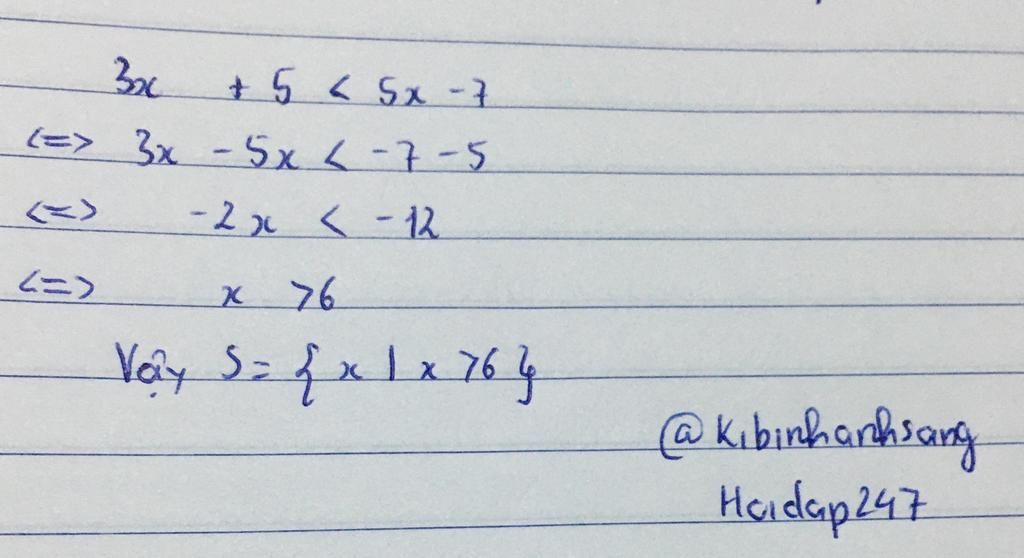 3x + 5 < 5x - 7
<=> 3x - 5x < -7 - 5
<=> -2x < -12
<=> x > 6
Vậy S = { x | x > 6 }
@Kibinhanhsang
Hoidap247